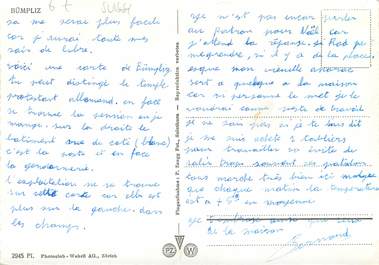 BÜMPLIZ
sa me serai plus facile
car j'aurai toute mes
soirs de libre.
voici une carte de Bümpliz
tu peut distingé le temple
protestant allemand. en face
se trouve la pension ou je
mange. sur la droite le
batiment vue de coté (blanc)
c'est la poste et en face
la gendarmerie.
l'exploitation ne se trouve
sur cette carte car elle est
plus sur la gauche dans
les champs.
2945 Pl. Photoglob-Wehrli AG., Zürich
Flugaufnahme: P. Zaugg Fot., Solothurn - Reproduktion verboten
PZ W
je n'est pas encor parler
au patron pour car
j'attend la réponse. si
, si il y a de la place.
esque mon
sert a quelque a la maison
car si personne le met je le
voudrai comme poste de travail
je ne sais pas si je te l'ais dit
je me suis acheté 2 tabliers
pour travailler sa evite de
salir trop souvent ses pantalons
tous marche très bien ici malgré
que chaque matin la température
est a + 5° en moyenne
je
de la maison
Fernand